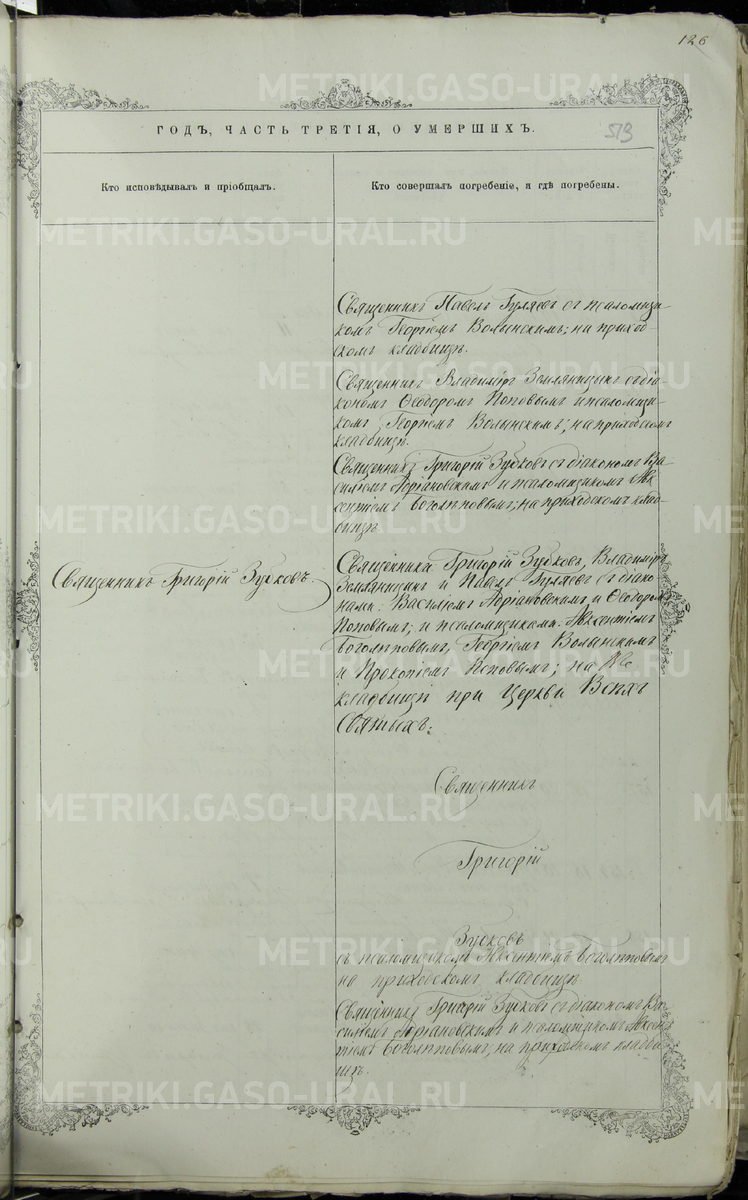 126
METRIKI.GASO-URAL.RU
ГОДЪ, ЧАСТЬ ТРЕТІЯ, О УМЕРШИХЪ.
513
Кто исповѣдывалъ и пріобщалъ.
Кто совершалъ погребеніе, и гдѣ погребены.
METRIKI.GASO-URAL.RU
Священникъ Павелъ Гуляевъ съ псаломщи-
комъ Георгіемъ Волынскимъ; на приход-
скомъ кладбищѣ.
METRIKI.GASO-URAL.RU
Священникъ Владиміръ Земляницынъ съ діа-
кономъ Ѳеодоромъ Поповымъ и псаломщи-
комъ Георгіемъ Волынскимъ; на приходскомъ
кладбищѣ.
Священникъ Григорій Зубковъ съ діакономъ Ва-
силіемъ Адріановскимъ и псаломщикомъ Авк-
сентіемъ Боголѣповымъ; на приходскомъ клад-
бищѣ.
METRIKI.GASO-URAL.RU
Священникъ Григорій Зубковъ.
Священники Григорій Зубковъ, Владиміръ
Земляницынъ и Павелъ Гуляевъ съ діако-
нами: Василіемъ Адріановскимъ и Ѳеодоромъ
Поповымъ; и псаломщиками: Авксентіемъ
Боголѣповымъ, Георгіемъ Волынскимъ
и Прокопіемъ Поповымъ; на
кладбищѣ при Церкви Всѣхъ
Святыхъ.
METRIKI.GASO-URAL.RU
Священникъ
METRIKI.GASO-URAL.RU
Григорій
Зубковъ
съ псаломщикомъ Авксентіемъ Боголѣповымъ
на приходскомъ кладбищѣ
METRIKI.GASO-URAL.RU
Священникъ Григорій Зубковъ съ діакономъ Ва-
силіемъ Адріановскимъ и псаломщикомъ Авксен-
тіемъ Боголѣповымъ; на приходскомъ кладби-
щѣ.
METRIKI.GASO-URAL.RU